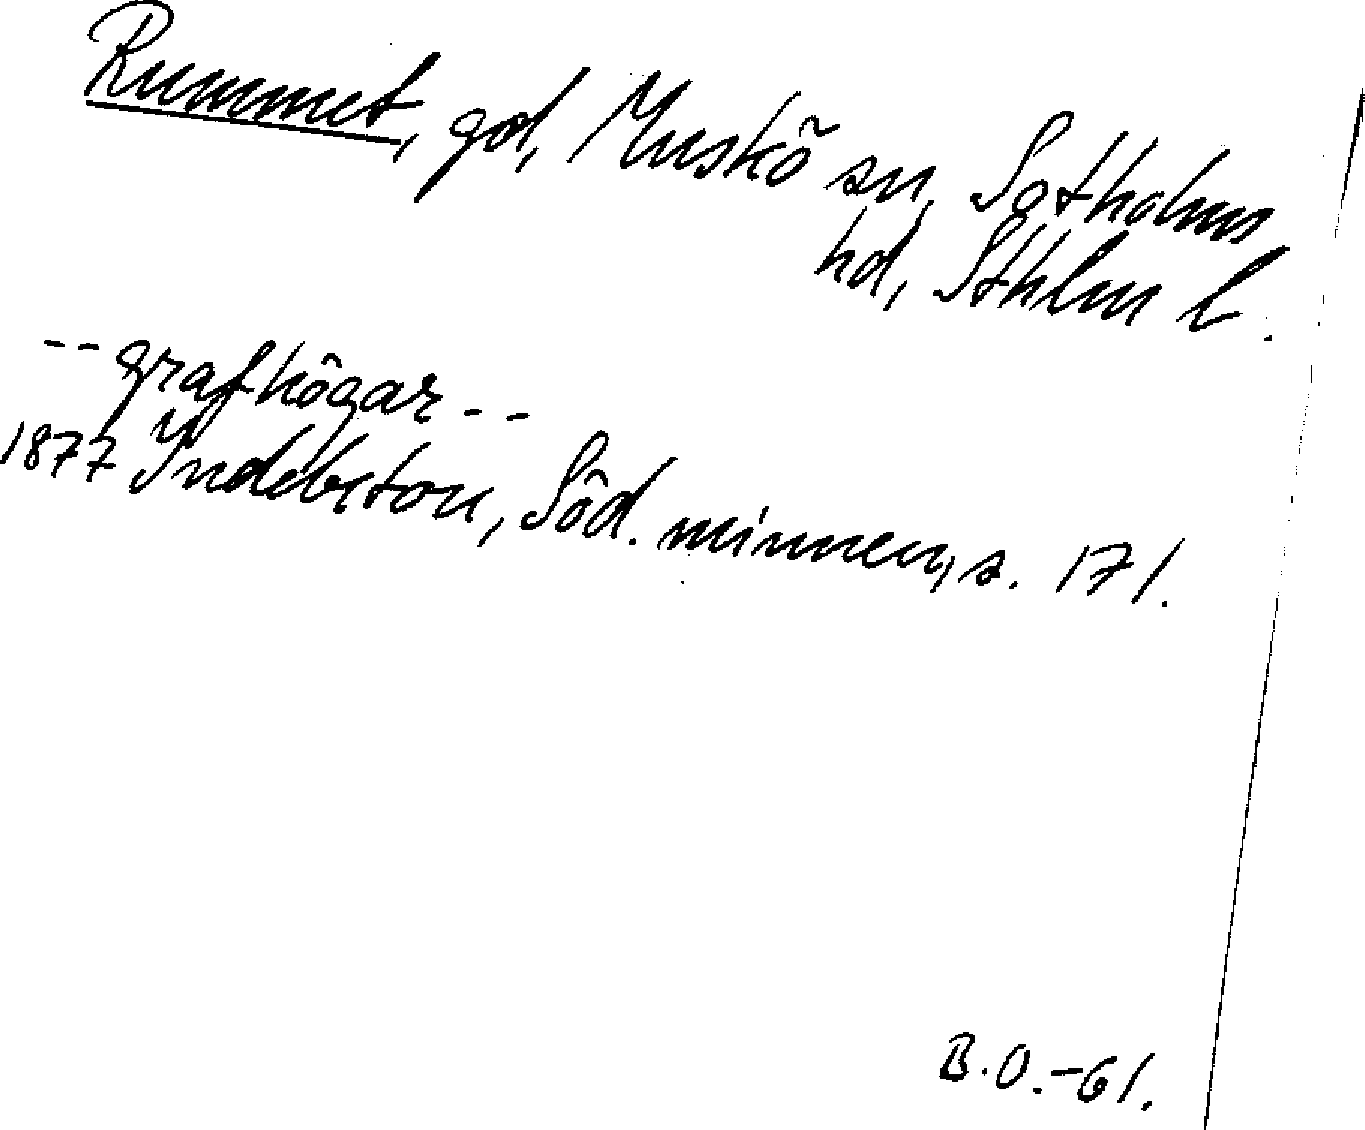 Rummet, gd, Muskö sn, Sotholms
hd, Sthlm l.
-- grafhögar --
1877 Indebetou, Söd. minnen, s. 171.
B.O.-61.